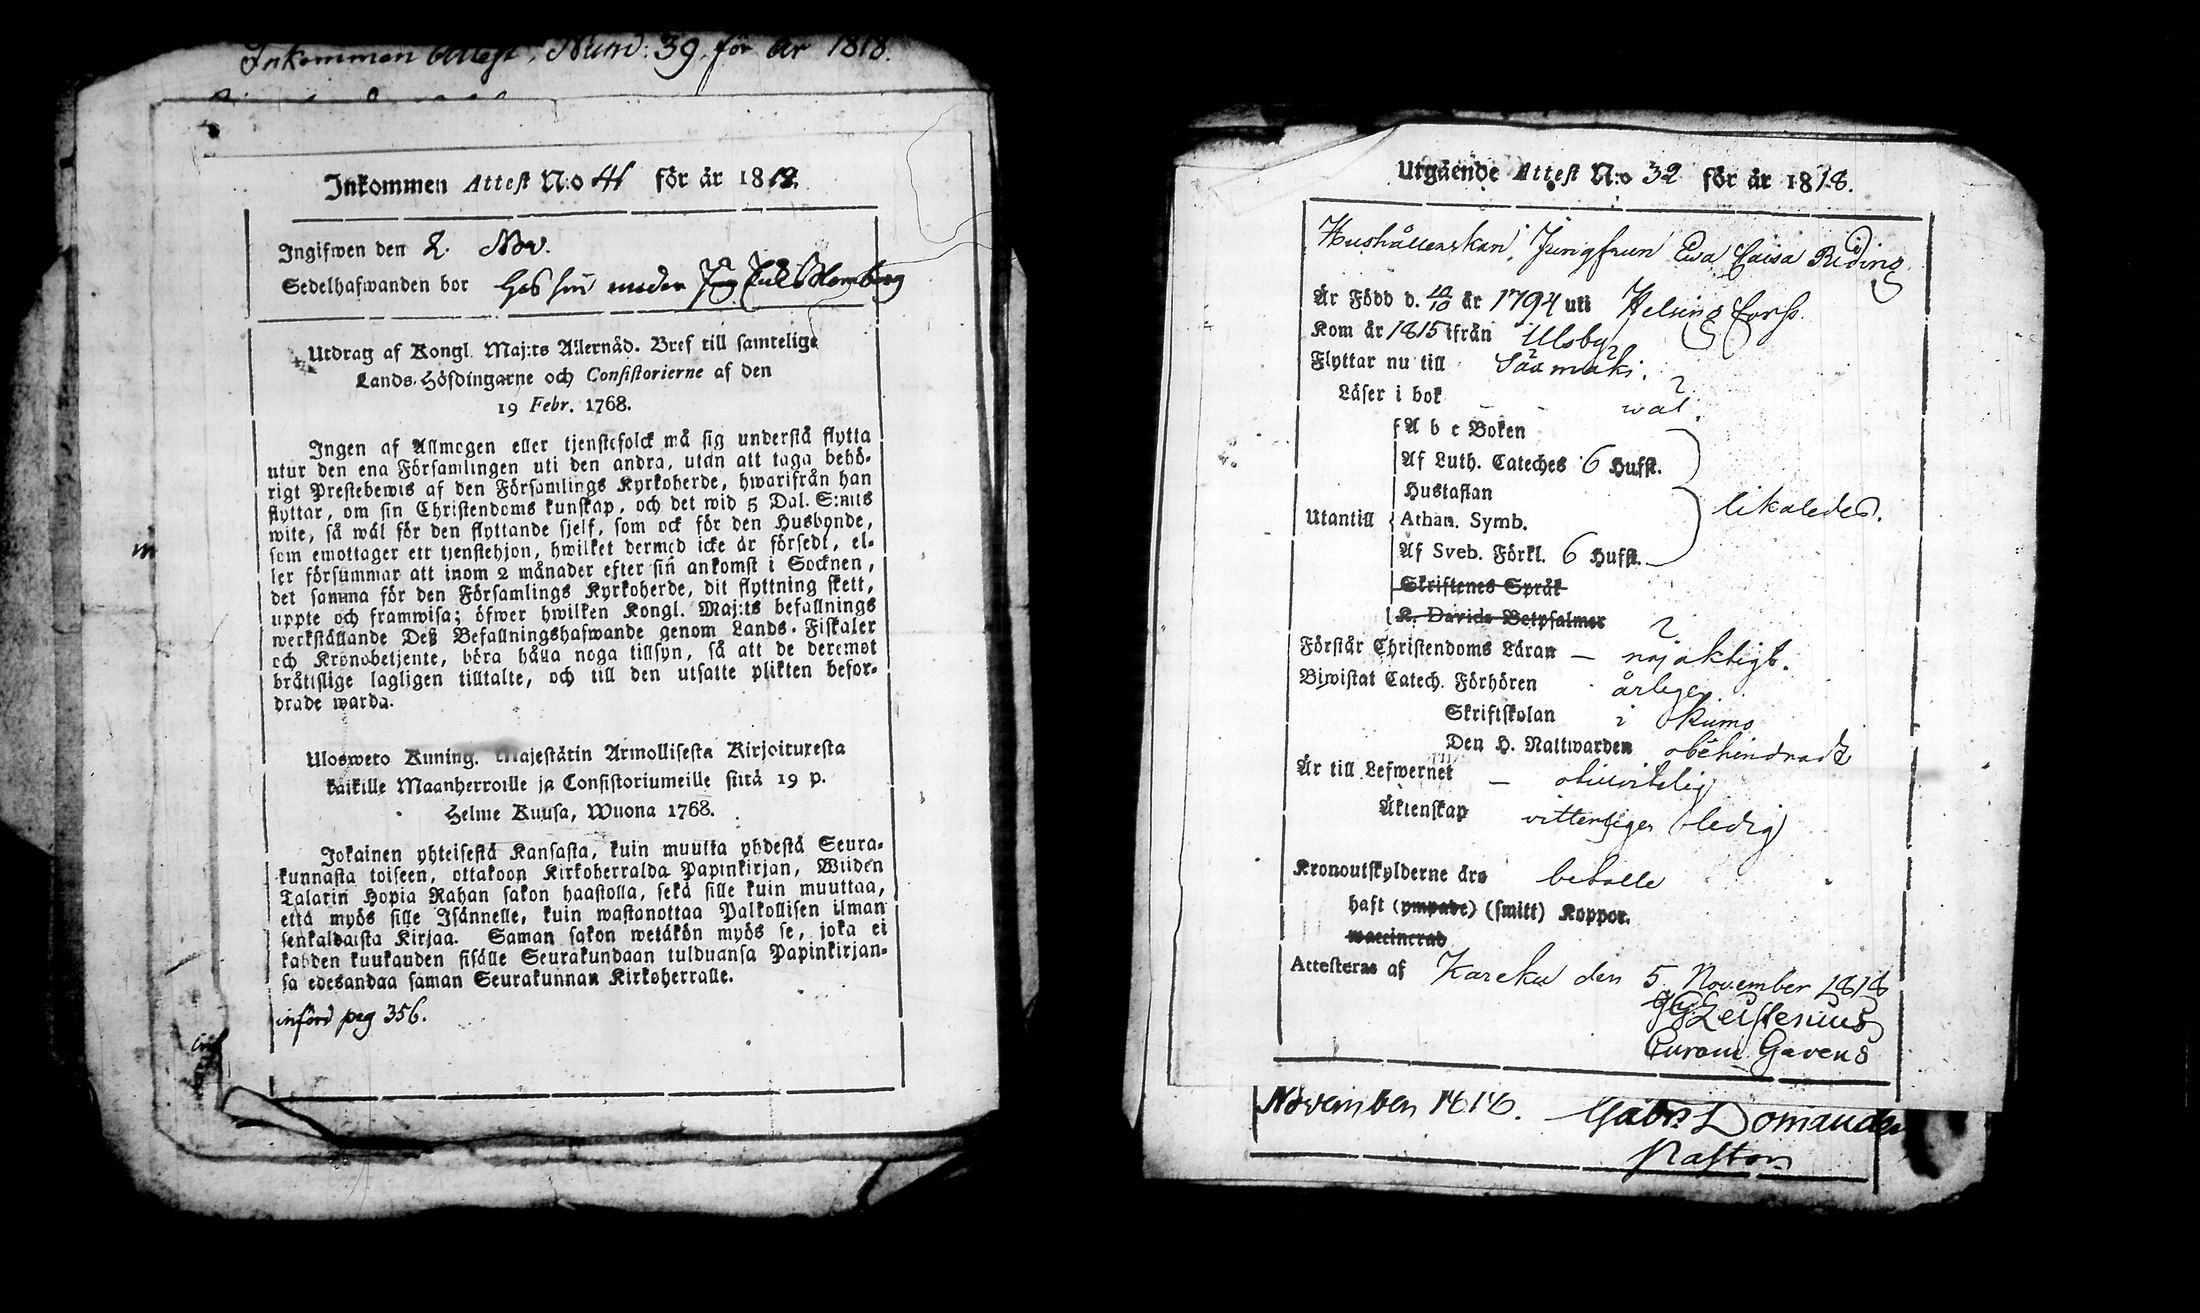 Inkommen Attest, Num: 39. för år 1818.
Inkommen Attest N:o 41 för år 1818.
Ingifwen den 2. Nov.
Sedelhafwanden bor hos sin moder
Utdrag af Kongl. Maj:ts Allernåd. Bref till samtelige
Lands-Höfdingarne och Consistorierne af den
19 Febr. 1768.
Ingen af Allmogen eller tjenstefolck må sig understå flytta
utur den ena Församlingen uti den andra, utan att taga behö-
rigt Prestebewis af den Församlings Kyrkoherde, hwarifrån han
flyttar, om sin Christendoms kunskap, och det wid 5 Dal. S:mts
wite, så wäl för den flyttande sjelf, som ock för den Husbonde,
som emottager ett tjenstehjon, hwilket dermed icke är försedt, el-
ler försummar att inom 2 månader efter siñ ankomst i Socknen,
det samma för den Församlings Kyrkoherde, dit flyttning skett,
uppte och framwisa; öfwer hwilken Kongl. Maj:ts befallnings
werkställande Deß Befallningshafwande genom Lands-Fiskaler
och Kronobetjente, böra hålla noga tillsyn, så att de deremot
bråtislige lagligen tilltalte, och till den utsatte plikten befor-
drade warda.
Ulosweto Kuning. Majestätin Armollisesta Kirjoituxesta
kaikille Maanherroille ja Consistoriumeille siitä 19 p.
Helme Kuusa, Wuona 1768.
Jokainen yhteisestä Kansasta, kuin muutta yhdestä Seura-
kunnasta toiseen, ottakoon Kirkoherralda Papinkirjan, Wiiden
Talarin Hopia Rahan sakon haastolla, sekä sille kuin muuttaa,
että myös sille Isännelle, kuin wastanottaa Palkollisen ilman
senkaldaista Kirjaa. Saman sakon wetäkön myös se, joka ei
kahden kuukauden sisälle Seurakundaan tulduansa Papinkirjan-
sa edesandaa saman Seurakunnan Kirkoherralle.
införd pag 356.
Utgående Attest N:o 32 för år 1818.
Hushållerskan, Jungfrun Eva Caisa Riding
Är Född d. 10/10 år 1794 uti Helsingfors.
Kom år 1815 ifrån Ulfsby
Flyttar nu till Säämäki.
Läser i bok - - wäl.
A b c Boken
Af Luth. Cateches 6 Hufst.
Hustaflan
Utantill Athan. Symb. likaledes.
Af Sveb. Förkl. 6 Hufst.
Skriftenes Språk
K. Davids Botpsalmer
Förstår Christendoms Läran — nöjaktigt.
Biwistat Catech. Förhören årligen
Skriftskolan i Kumo
Den H. Nattwarden obehindradt
Är till Lefwernet — otvivelig
Äktenskap vitterligen ledig
Kronoutskylderne äro betalte
haft (ympade) (smitt) Koppor.
waccinerad
Attesteras af Kareku den 5 November 1818
Curam Gerens
November 1818. Gabr. Domander
Pastor